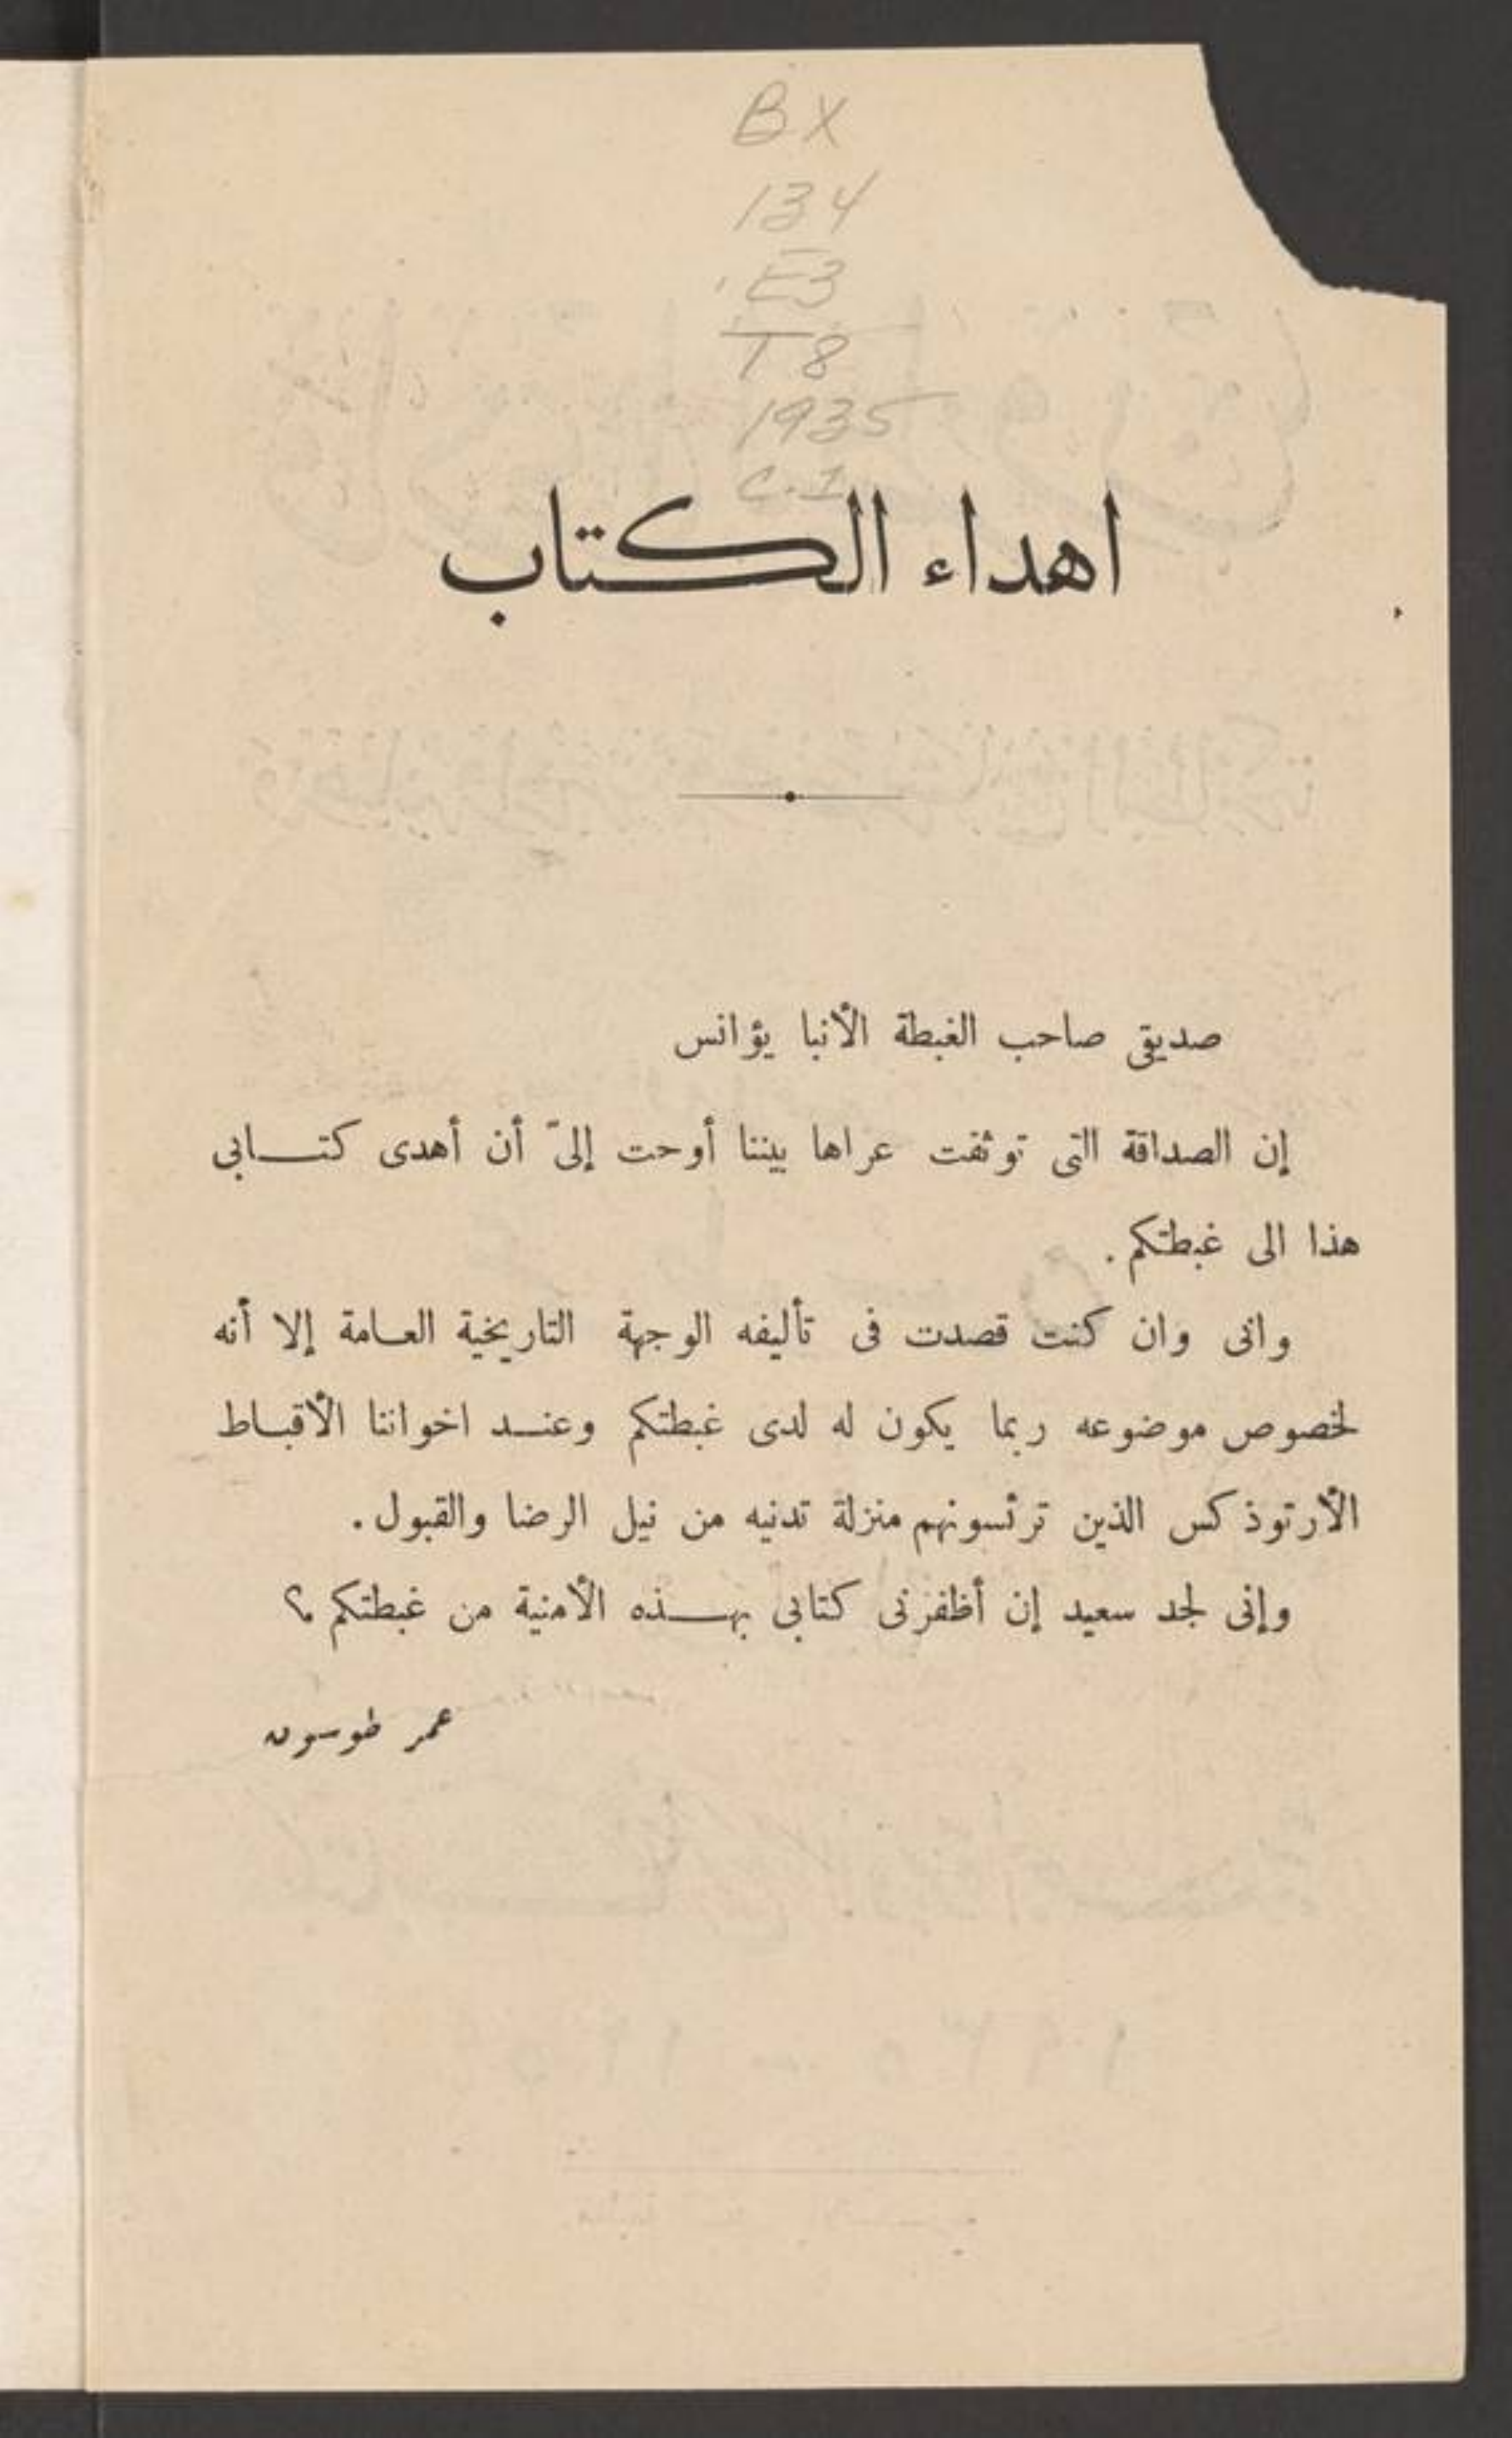 BX
134
.E3
T8
1935
C.1
اهداء الكتاب
صديقى صاحب الغبطة الأنبا يؤانس
إن الصداقة التى توثقت عراها بيننا أوحت إلىّ أن أهدى كتابى
هذا الى غبطتكم .
وانى وان كنت قصدت فى تأليفه الوجهة التاريخية العامة إلا أنه
لخصوص موضوعه ربما يكون له لدى غبطتكم وعند اخواننا الأقباط
الأرتوذكس الذين ترئسونهم منزلة تدنيه من نيل الرضا والقبول .
وإنى لجد سعيد إن أظفرنى كتابى بهذه الأمنية من غبطتكم ؟
عمر طوسون